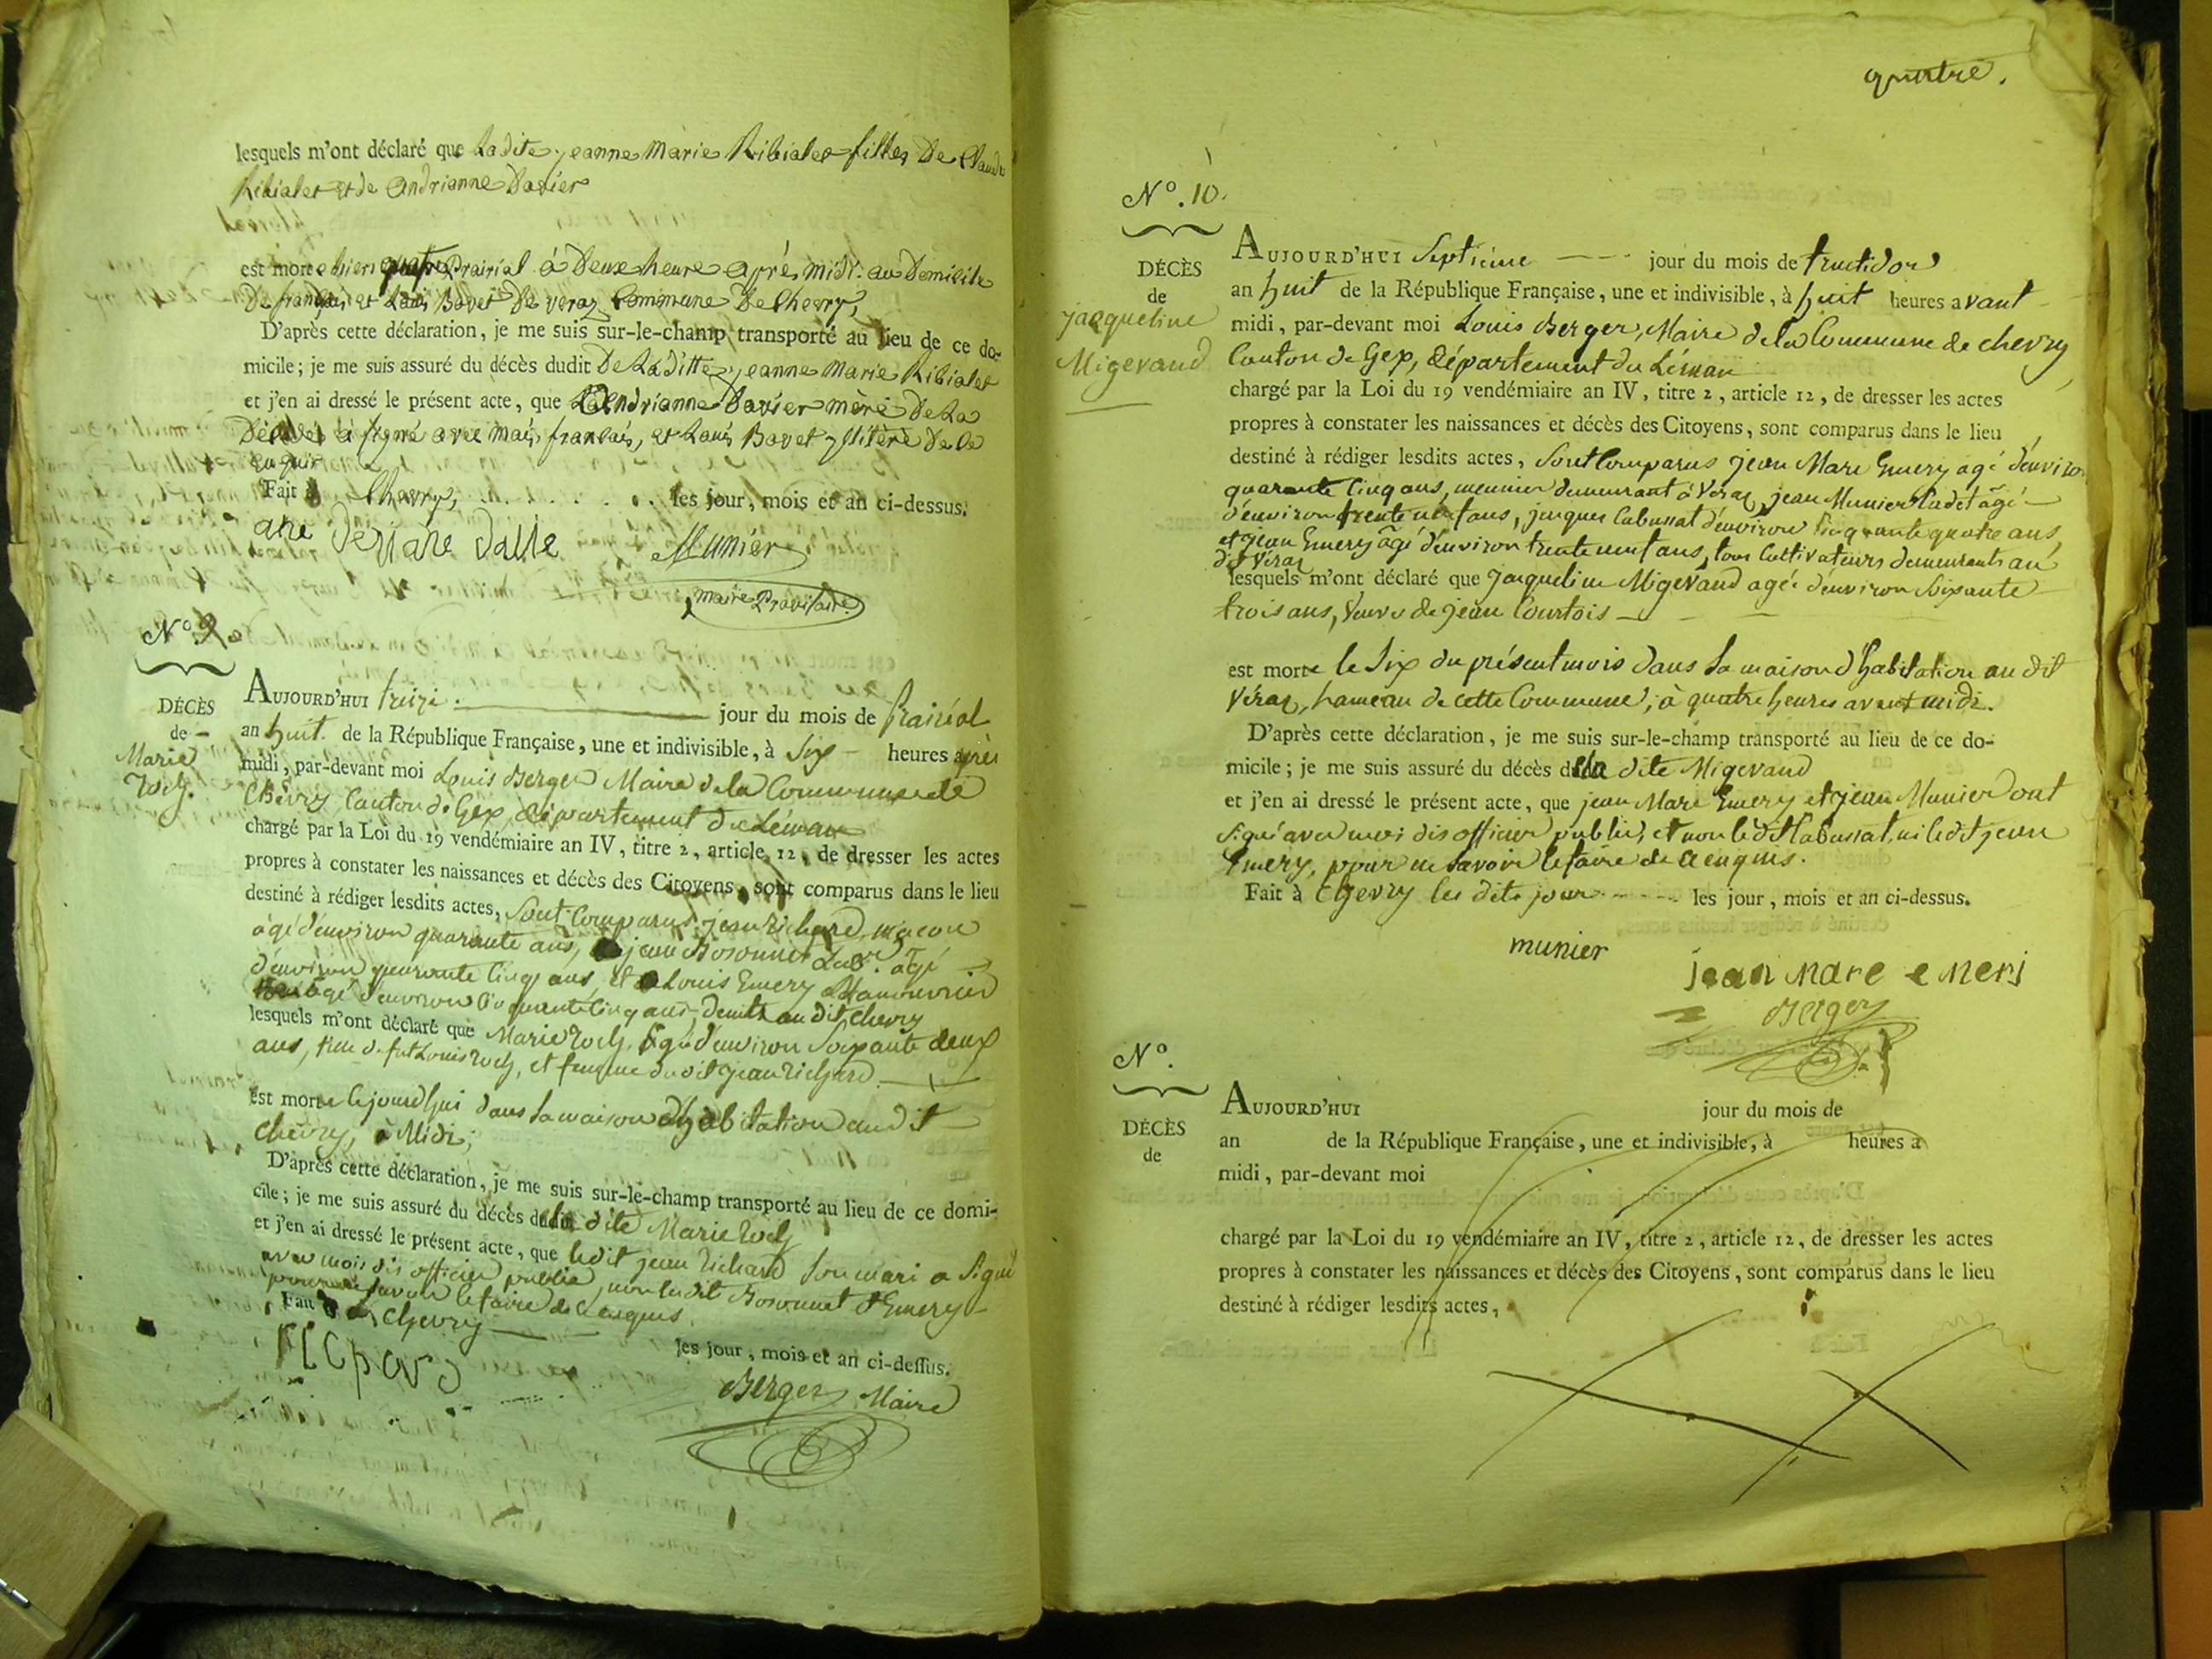 lesquels m'ont déclaré que Ladite jeanne Marie Ribialet filles De Claude
Ribialet et de Andrianne Davier
est morte hier quatre Prairial à Deux heure après midi au Domicile
De français et Louis Bovet De veraz Commune De Chevry,
D'après cette déclaration, je me suis sur-le-champ transporté au lieu de ce do-
micile; je me suis assuré du décès dudit De La Ditte jeanne Marie Ribialet
et j'en ai dressé le présent acte, que Andrianne Davier mère De La
à signé avec français, et Louis Bovet De ce
enquis
Fait à Chevry, les jour, mois et an ci-dessus.
Munier
maire Provisoire
No. 9
DÉCÈS
de
Marie
Roch.
AUJOURD'HUI treize jour du mois de prairéal
an huit de la République Française, une et indivisible, à Six heures après
midi, par-devant moi Louis Berger Maire de la Commune de
Chevry Canton de Gex, département du Léman
chargé par la Loi du 19 vendémiaire an IV, titre 2, article 12, de dresser les actes
propres à constater les naissances et décès des Citoyens, sont comparus dans le lieu
destiné à rédiger lesdits actes, Sont Comparus jean Richard, maçon
âgé d'environ quarante ans, jean Bosonnet Labr. âgé
d'environ quarante Cinq ans, et Louis Emery Manouvrier
âgé d'environ Cinquante Cinq ans, demts. au dit Chevry
lesquels m'ont déclaré que Marie Roch, âgé d'environ Soixante deux
ans, fille de fut Louis Roch, et femme dudit jean Richard
est morte Cejourd'hui dans Sa maison d'habitation au dit
Chevry, à Midi;
D'après cette déclaration, je me suis sur-le-champ transporté au lieu de ce domi-
cile; je me suis assuré du décès de la dite Marie Roch
et j'en ai dressé le présent acte, que ledit jean Richard Son mari a Signé
avec mois dis officier public, non ledit Bosonnet & Emery
pour ne Savoir le faire de ce enquis.
Fait à Chevry les jour, mois et an ci-dessus.
Berger Maire
quatre.
No. 10.
DÉCÈS
de
jacqueline
Migevand
AUJOURD'HUI Septieme jour du mois de fructidor
an huit de la République Française, une et indivisible, à huit heures avant
midi, par-devant moi Louis Berger, Maire de la Commune de Chevry
Canton de Gex, département du Léman
chargé par la Loi du 19 vendémiaire an IV, titre 2, article 12, de dresser les actes
propres à constater les naissances et décès des Citoyens, sont comparus dans le lieu
destiné à rédiger lesdits actes, Sont Comparus jean Marc Emery agé d'environ
quarante Cinq ans, meunier demeurant à Véraz, jean Munier Cadet âgé
d'environ trente neuf ans, jacques Cabussat d'environ Cinquante quatre ans,
et jean Emery âgé d'environ trente neuf ans, tous Cultivateurs demeurants au
dit Véraz
lesquels m'ont déclaré que jacqueline Migevand agée d'environ Soixante
trois ans, Veuve de jean Courtois
est morte le Six du présent mois dans Sa maison d'habitation au dit
Véraz, hameau de cette Commune, à quatre heures avant midi.
D'après cette déclaration, je me suis sur-le-champ transporté au lieu de ce do-
micile; je me suis assuré du décès de la dite Migevand
et j'en ai dressé le présent acte, que jean Marc Emery et jean Munier ont
Signé avec moi dis officier public, et non ledit Cabussat, ni ledit jean
Emery, pour ne Savoir le faire de ce enquis.
Fait à Chevry les dits jour les jour, mois et an ci-dessus.
munier
jean marc emeri
Berger
No.
DÉCÈS
de
AUJOURD'HUI jour du mois de
an de la République Française, une et indivisible, à heures a
midi, par-devant moi
chargé par la Loi du 19 vendémiaire an IV, titre 2, article 12, de dresser les actes
propres à constater les naissances et décès des Citoyens, sont comparus dans le lieu
destiné à rédiger lesdits actes,